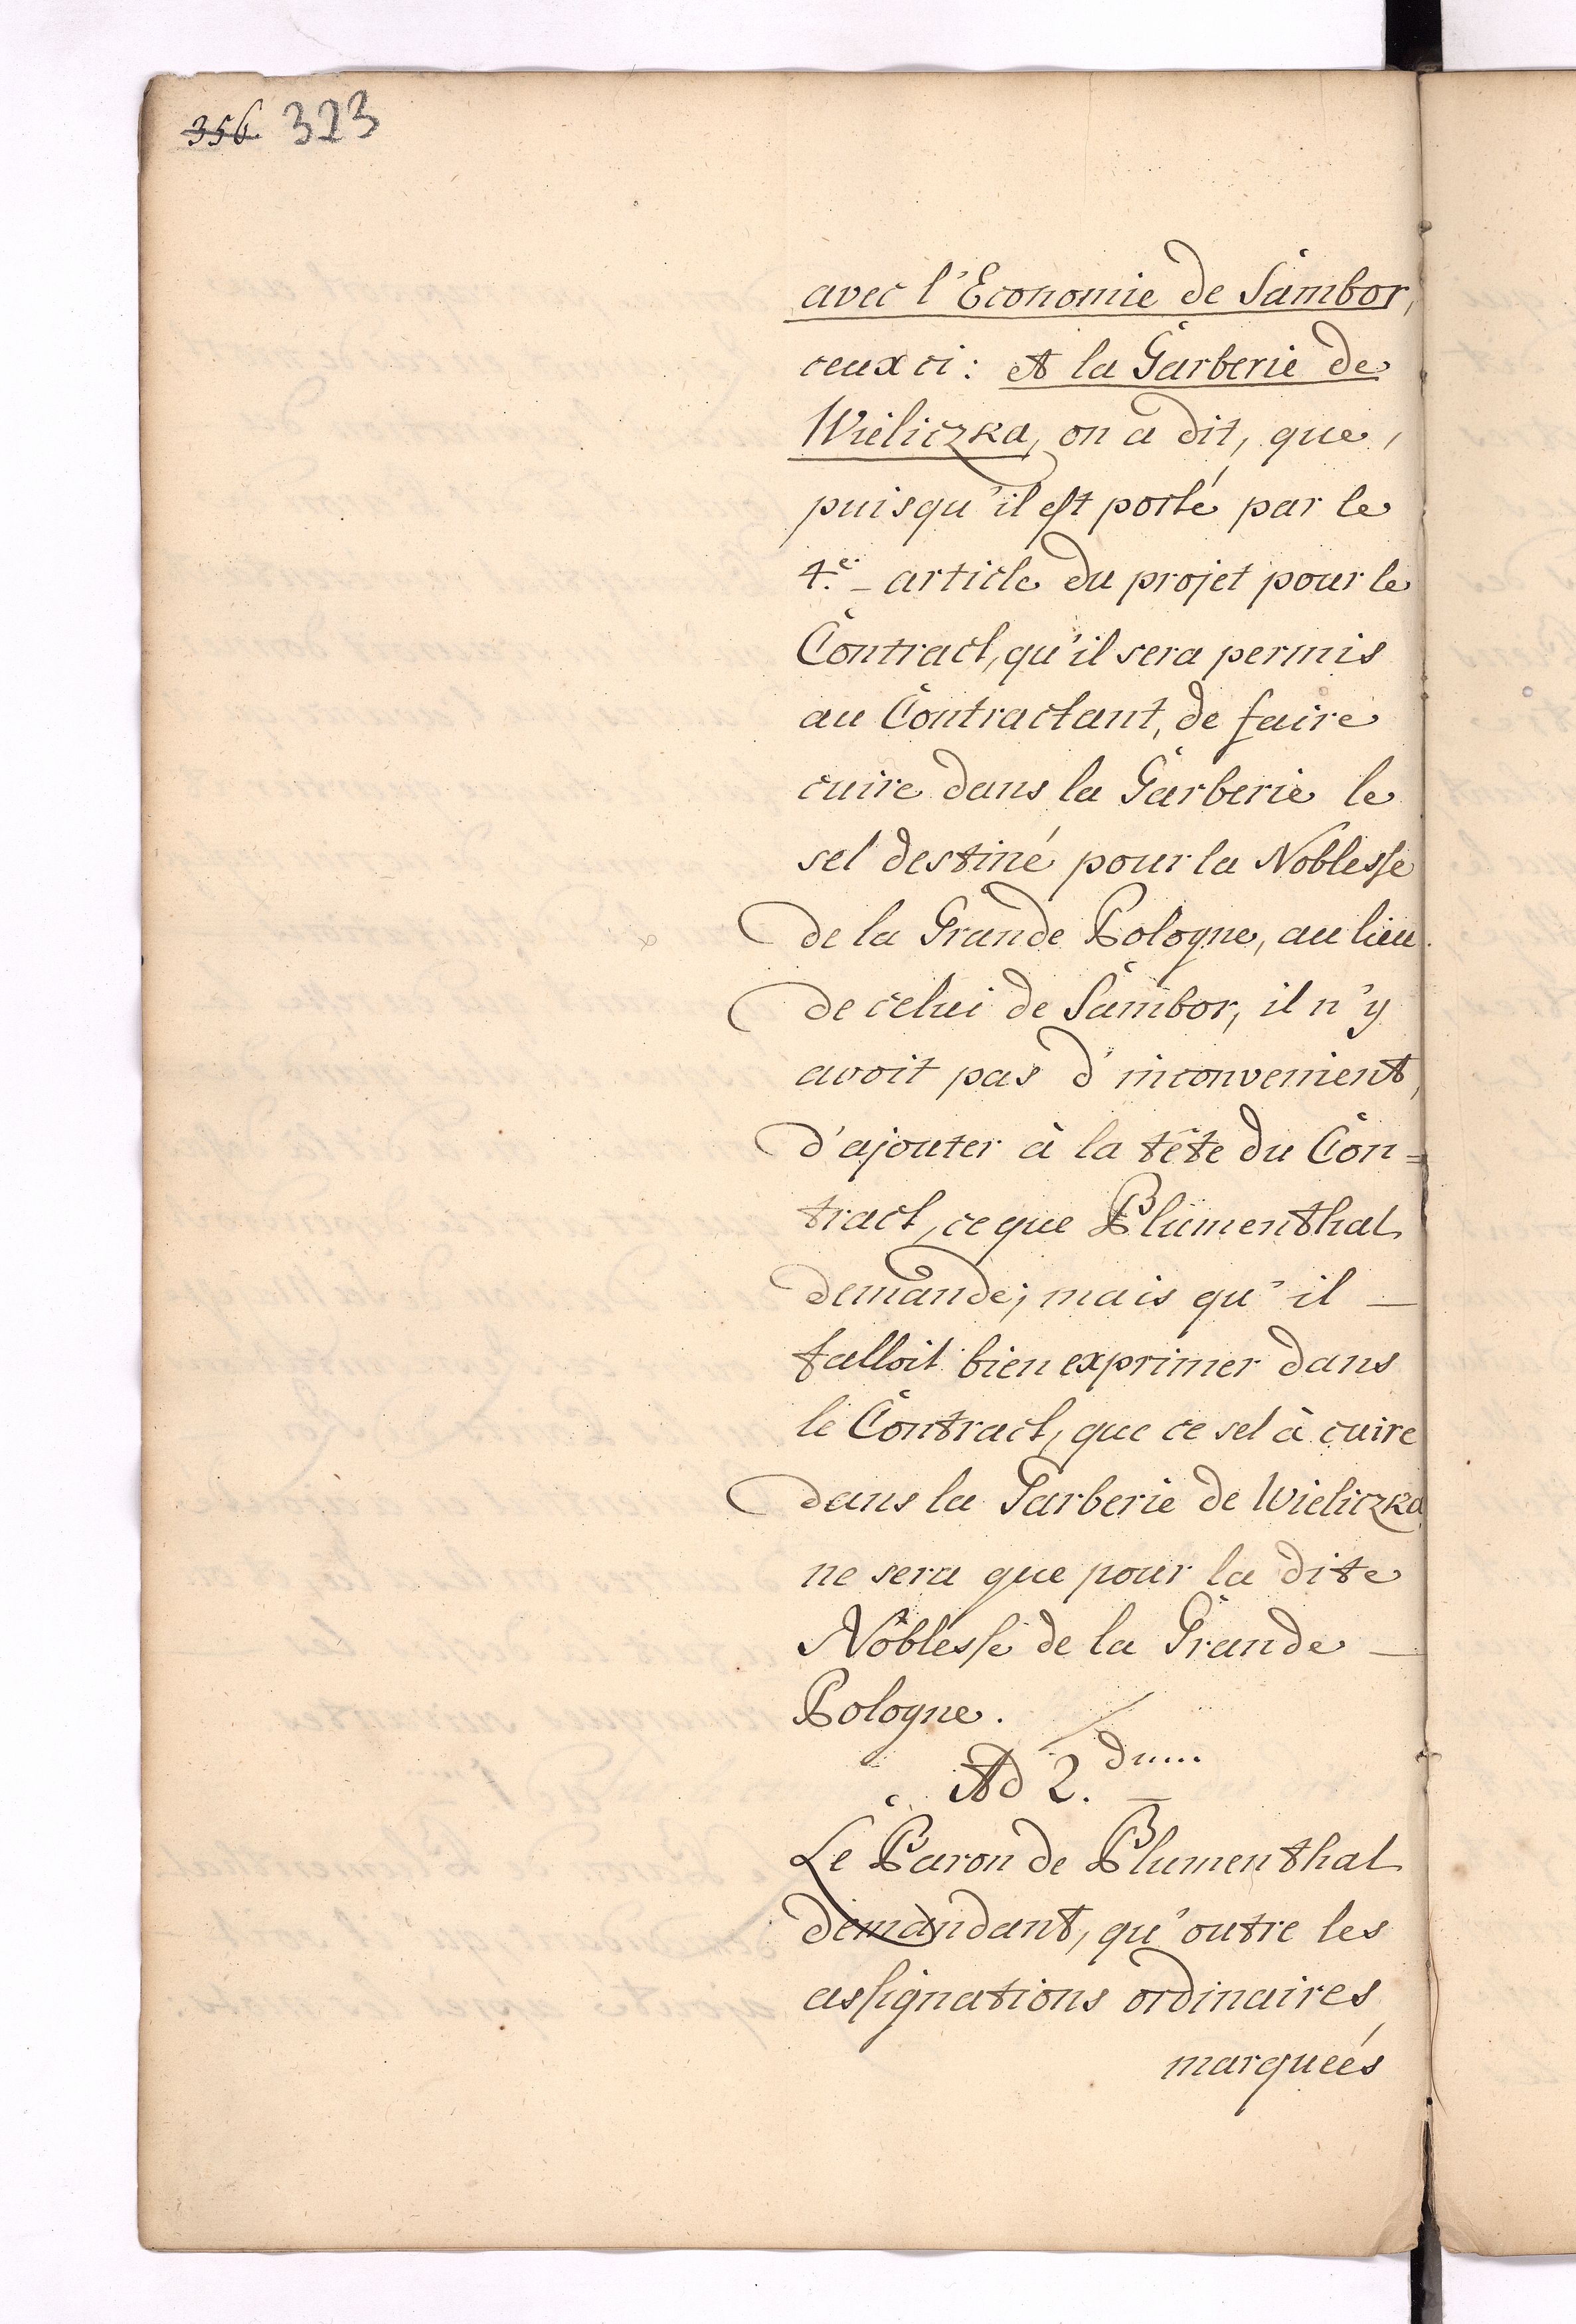 356. 323
avec l'Economie de Sambor,
ceux ci: et la Garberie de
Wieliczka, on a dit, que,
puisqu'il est porté par le
4.e article du projet pour le
Contract, qu'il sera permis
au Contractant, de faire
cuire dans la Garberie le
sel destiné pour la Noblesse
de la Grande Pologne, au lieu
de celui de Sambor, il n'y
avoit pas d'inconvenient,
d'ajouter à la tête du Con=
tract, ce que Blumenthal
demande; mais qu'il —
falloit bien exprimer dans
le Contract, que ce sel à cuire
dans la Garberie de Wieliczka
ne sera que pour la dite
Noblesse de la Grande —
Pologne.
Ad 2.dum
Le Baron de Blumenthal
demandant, qu'outre les
assignations ordinaires,
marqueés